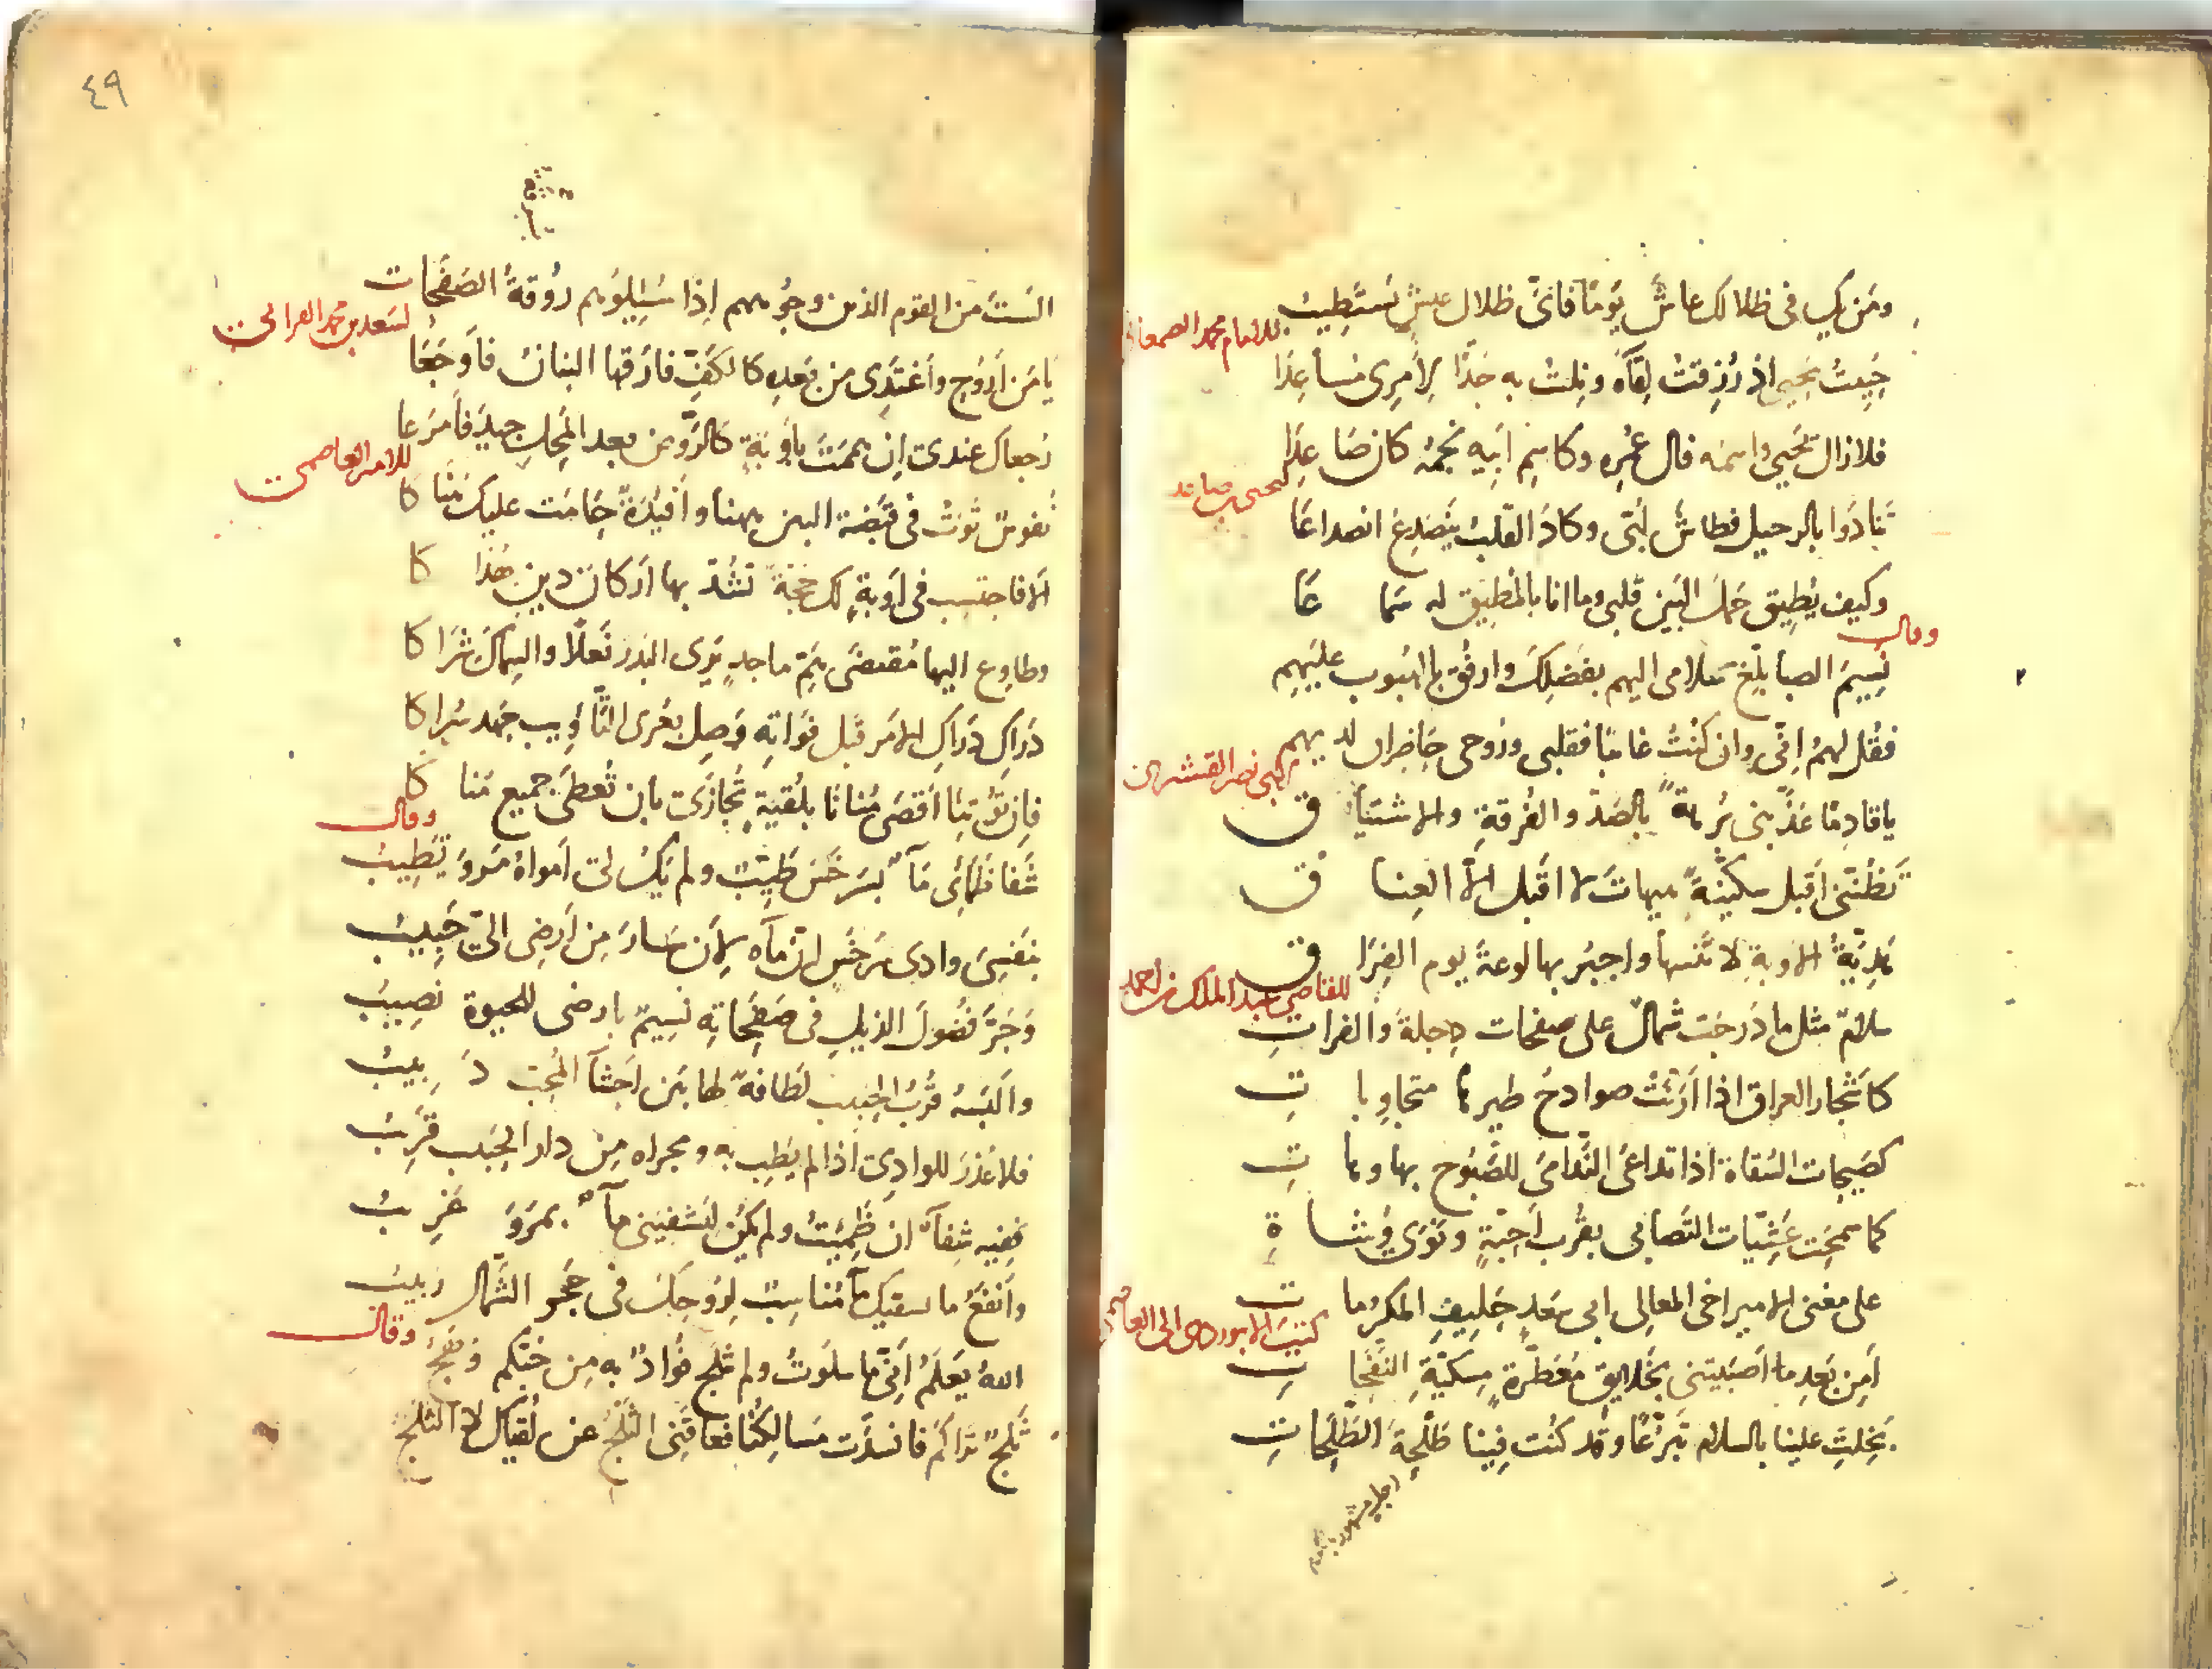 ومَن يك في ظلالك عاش يَومًا فأىّ ظلال عيشٍ يَستَطِيبُ
للامام محمد السمعاني
حَيِيتُ بيَحيى إذ رُزِقتُ لِقآءَه ونِلتُ به جَدًّا لِأمرِى مُساعِدًا
فلا زال يَحيى واسمه فال عُمرِه وكاسم ابيه نجمُه كان صَاعِدَا
ليحيى بن صاعد
تنادَوا بالرحيل فطاش لُبّى وكادَ القلبُ ينصَدِعُ انصداعَا
وكيف يُطِيق حَملَ البَينِ قلبى وما انا بالمُطِيقِ له سَماعَا
وقال
نَسِيمَ الصبا بلّغ سلامى اليهم بفَضلِكَ وارفُق بالهُبُوب عليهِم
فقُل لهمُ إنّى وان كنتُ غائبًا فقلبى ورُوحى حاضِران لديهم
لابى نصر القشيرى
يا قادِمًا عذّبنى بُرهةً بالصَدّ والفُرقةِ والاشتياق
تَظُنّنى اقبل سكينةً هيهاتَ لا اقبل الّا العِناق
هَدِيّةُ الاوبةِ لا تَنسَها واجبُر بها لوعةَ يوم الفِرَاق
للقاضى عبد الملك بن احمد
سلامٌ مثل ما دَرجَت شمالٌ على صفحات دِجلةَ والفراتِ
كأشجار العراق اذا أرَنَّت صوادحُ طيرها متجاوِباتِ
كصَيحات السُقاة اذا تداعى النَّدامى للصَّبُوح بها وهاتِ
كما سمحَت عَشِيّات التَصابى بقُرب أحِبّةٍ ونَوَى وُشاةِ
على مغنى الامير اخى المعالِى ابى سَعدٍ حَلِيفِ المكرُماتِ
كتب الابيوردى الى العاصمى
أمِن بَعدِ ما أصبَيتَنى بخَلايِقٍ مُعَطَّرةٍ مِسكيّةِ النَفَحاتِ
بَخِلتَ علينا بالسلام تَبَرُّعًا وقد كنتَ فِينا طَلحةَ الطَّلَحاتِ
٤٩
الَستَ من القوم الذين وجُوههم إذا سُئِلوا هم روُقةُ الصَفَحات
لسَعد بن محمد
يا مَن أرُوح وأغتَدِى من بَعدِه كالكَفِّ فارَقها البنانُ فأوجَعَا
رُجعاك عندى إن هممَتَ بأوبَةٍ كالرّوض من بعد المَحلِ جِيدَ فأمرَعا
للامير العاصمى
نُفوسٌ ثَوَتْ فى قبَضة البين رهنا وأفئِدَةٌ حامَت عليك هَناكا
ألا فاحتسِب فى أوبةٍ لك حجّةً تشُدّ بها أركان دينٍ هُذاكا
وطاوِع اليها مُقتضَى هِمّ ماجدٍ يَرَى البَدرَ نَعلًا والسِماكَ شِرَاكا
دَراكِ دَراكِ الامرَ قبل فَوَاتِهِ وَصِل بعُرى التَّأوِيب جهد سُراكا
فإن تُؤتِنا أقصَى مُنانا بلُقيَةٍ تُجازَى بان تُعطَى جميع مُناكا
وقال
شَفا ظمَأى مَآءٌ بسَرخَسَ طَيّبٌ ولم يَكُ لى أمواهُ مَروَ يَطِيبُ
بنَفسِىَ وادِى سَرخَسٍ انّ مآءَه لأن سَارَ مِن أرضِى الىّ حَبِيبُ
وجَرَّ فُضُولَ الذيلِ فى صَفَحاتِه نَسِيمٌ بارضى للحيوة نصِيبُ
وألبَسَه قُربُ الحبِيبِ لطافةً لها بَينَ أحشآءِ المُحِبّ دَبِيبُ
فلا عُذرَ للوادِى اذا لم يَطِب به ومجراه مِن دارِ الحَبِيبِ قَرِيبُ
ففِيه شِفآءٌ ان ظَمِئتُ ولم يكُن ليَشفِيَنِى مآءٌ بمَروَ غَرِيبُ
وأنفَعُ ما سقيك مآءٌ مُناسِبٌ لِرُوحِكَ فى حَجرِ الشَّمال رَبِيبُ
وقال
اللهُ يَعلَمُ أنّى ما سلَوتُ ولم يثلج فؤادٌ به مِن حبّكم وَهَجُ
ثَلجٌ تراكَمَ فانسدَّت مَسالِكُنا فعاقَنِى الثَلجُ عن لُقياكَ لا الثَلَجُ